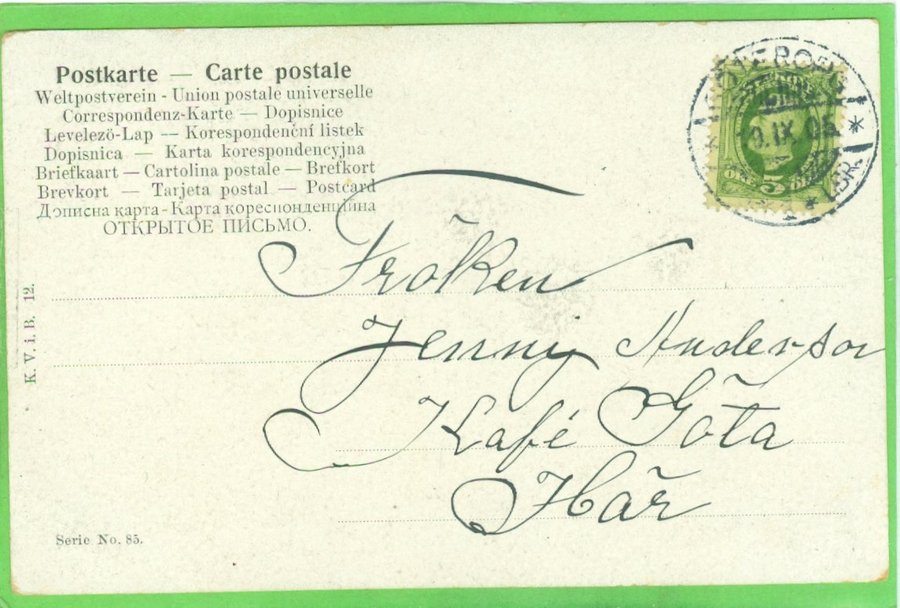 Postkarte — Carte postale
Weltpostverein - Union postale universelle
Correspondenz-Karte — Dopisnice
Levelező-Lap — Korespondenční listek
Dopisnica — Karta korespondencyjna
Briefkaart — Cartolina postale — Brefkort
Brevkort — Tarjeta postal — Postcard
Дописна карта - Карта кореспонденційна
ОТКРЫТОЕ ПИСЬМО.
Fröken
Jenny Anderson
Kafé Göta
Här
K. V. i. B. 12.
Serie No. 85.
GÖTEBORG
IX. 05
5
LBR.